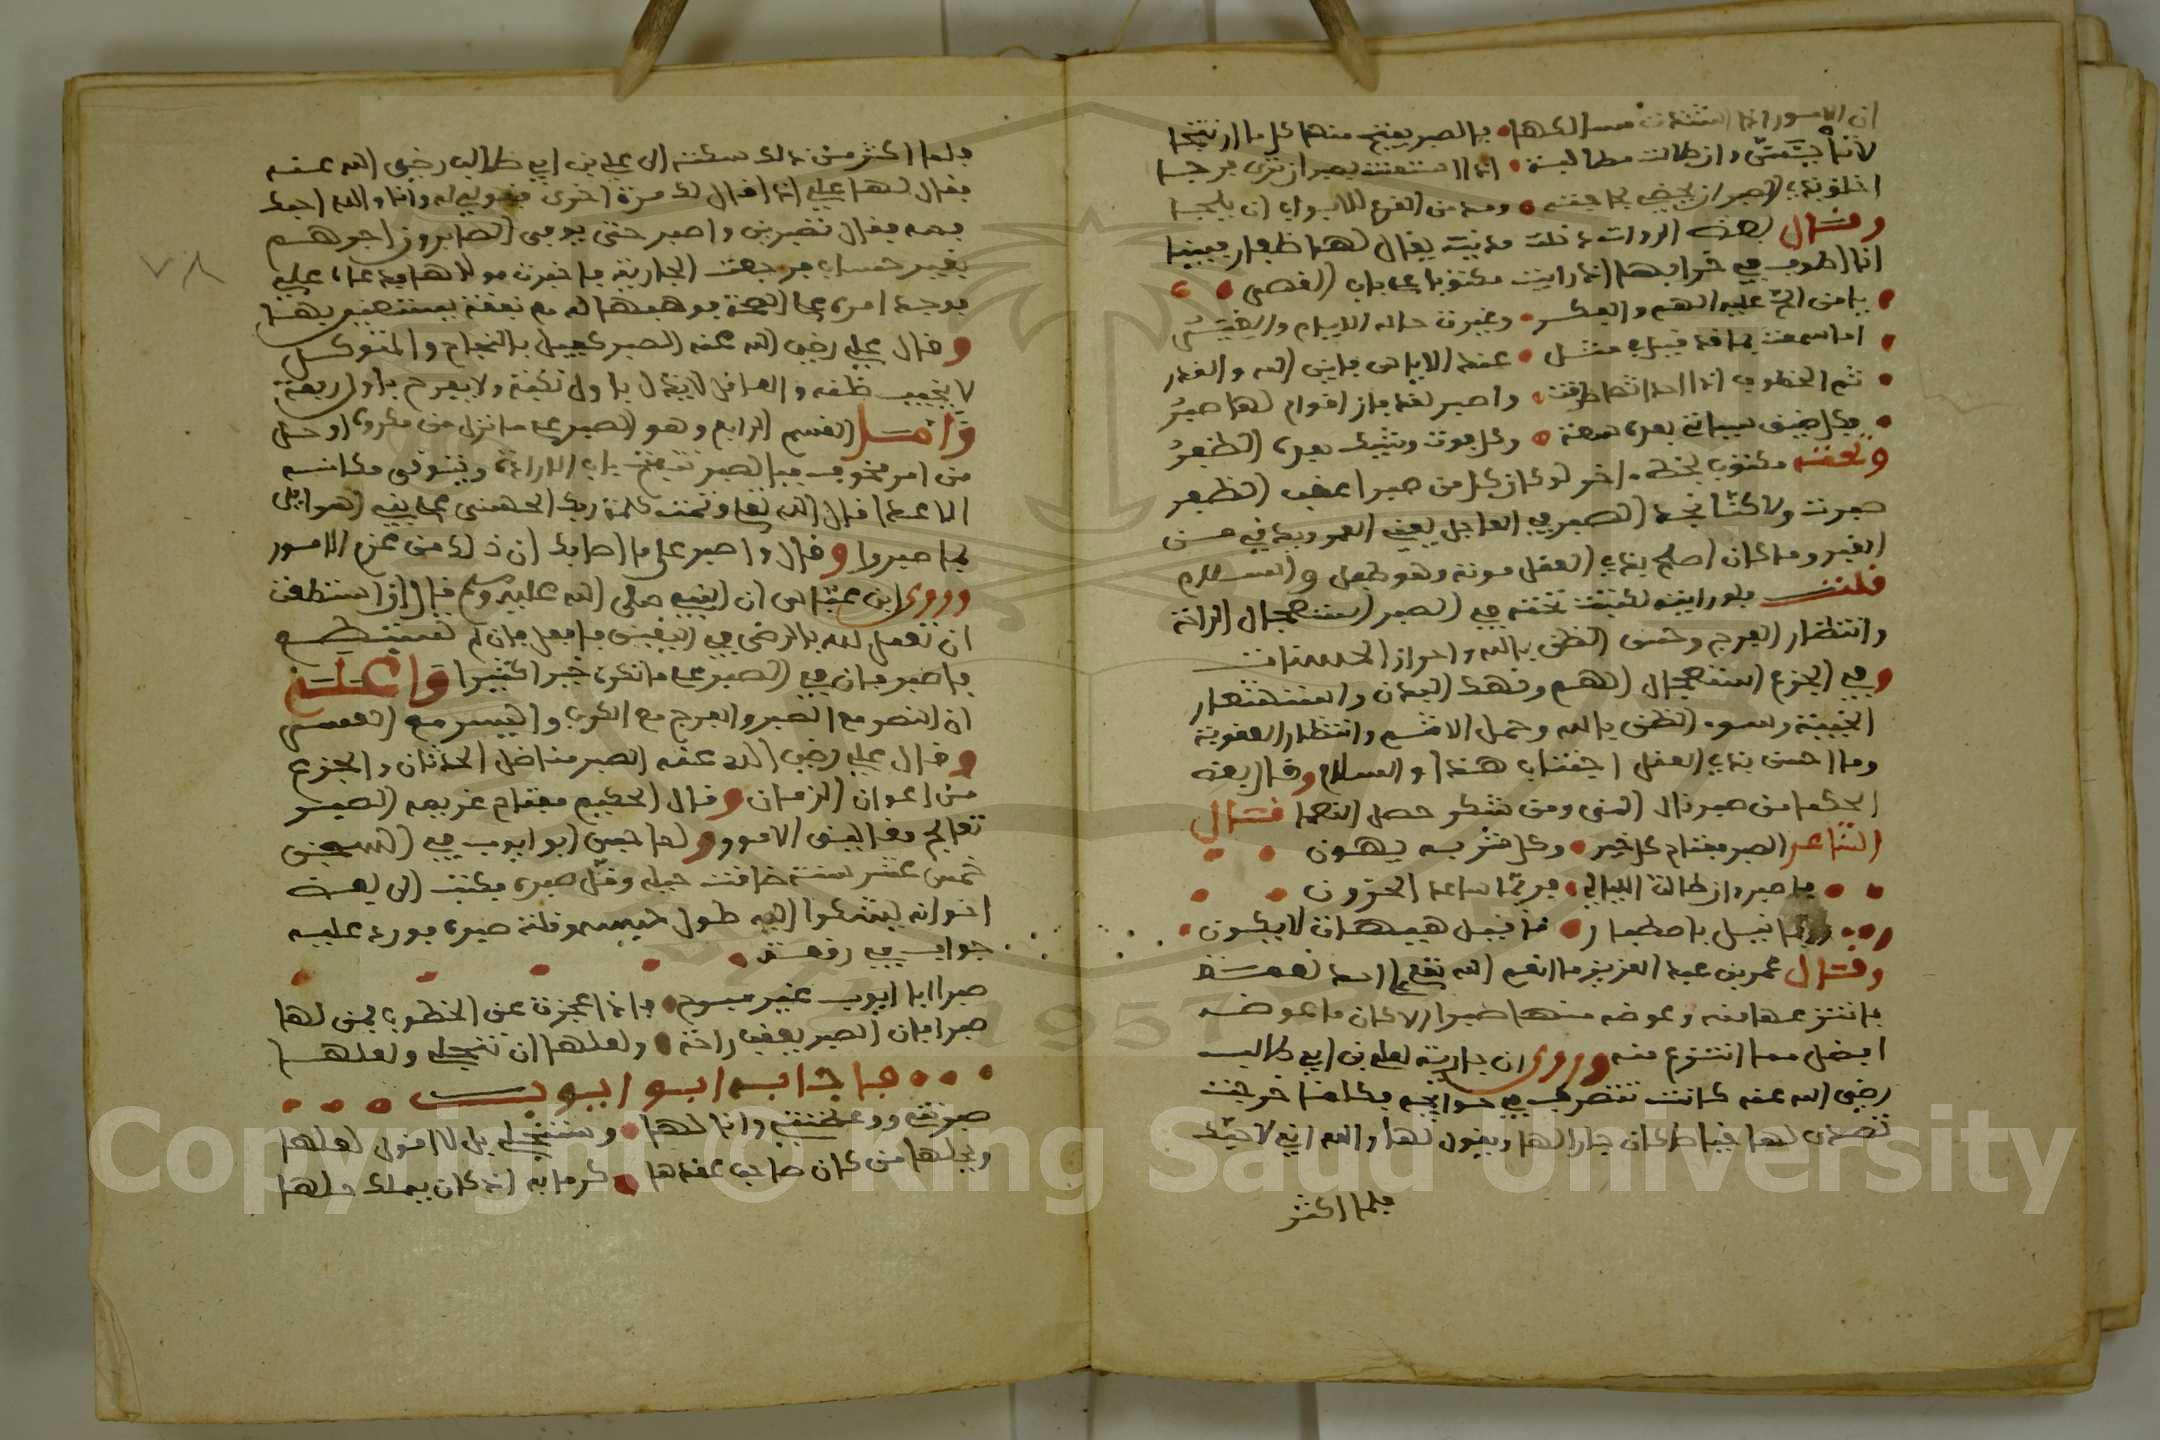 ان الامور اذا انسدت مسالكها • فالصبر يفتح منها كل ما ارتتجا
لا تيأسن وان طالت مطالبة • اذا استعنت بصبر ان ترى فرجا
اخلق بذي الصبر ان يحظى بحاجته • ومدمن القرع للابواب ان يلجا
وقال بعض الرواة دخلت مدينة يقال لها ظفار فبينما
انا اطوف في خرابها اذ رايت مكتوبا على باب القصر
يا من الح عليه الهم والفكر • وغيرت حاله الايام والغير
اما سمعت بما قد قيل في مثل • عند الاياس فاين الله والقدر
ثم الخطوب اذا احداثها طرقت • واصبر فقد فاز اقوام لها صبر
فكل ضيق سياتي بعده سعة • وكل فوت وشيك بعده الظفر
وتحته مكتوب بخط اخر لو كان كل من صبر اعقب الظفر
صبرت ولاكنا نجد الصبر في العاجل يفني العمر ويدني من
القبر وما كان اصلح بذي العقل موته وهو طفل والسلام
قلت فلو رايته لكتبت تحته في الصبر استعجال الراحة
وانتظار الفرج وحسن الظن بالله واحراز الحسنات
وفي الجزع استعجال الهم ونهك البدن واستشعار
الخيبة وسوء الظن بالله وحمل الاثم وانتظار العقوبة
وما احسن بذي العقل اجتناب هذا والسلام وقال بعض
الحكما من صبر نال المنى ومن شكر حصل النعما قال
الشاعر الصبر مفتاح كل خير • وكل شر به يهون
فاصبر وان طالت الليالي • فربما ساعد الحزون
وربما نيل باصطبار • ما قيل هيهات لا يكون
وقال عمر بن عبد العزيز ما انعم الله تعالى على احد نعمة
فانتزعها منه وعوضه منها صبرا الا كان ما عوضه
افضل مما انتزع منه وروى ان جارية لعلي بن ابي طالب
رضي الله عنه كانت تتصرف في حوائجه فكلما خرجت
تصدى لها خياط كان جارا لها ويقول لها والله اني لاحبك
فلما اكثر
فلما اكثر من ذلك شكته الى علي بن ابي طالب رضي الله عنه
فقال لها علي اذا قال لك مرة اخرى فقولي له وانا والله احبك
فمه فقال تصبرين واصبر حتى يوفى الصابرون اجرهم
بغير حساب فرجعت الجارية فاخبرت مولاها فدعاه علي
فوجد امره على الصحة فوهبها له مع نفقة يستعين بها
وقال علي رضي الله عنه الصبر كفيل بالنجاح والمتوكل
لا يخيب ظنه والعاقل لا يذل باول نكبة ولا يفرح باول رفعة
واما القسم الرابع وهو الصبر على ما نزل من مكروه او حل
من امر مخوف فبالصبر تنفتح باب الاراء وتتوقى مكائد
الاعدا قال الله تعالى وتمت كلمة ربك الحسنى على بني اسرائيل
بما صبروا وقال واصبر على ما اصابك ان ذلك من عزم الامور
وروى ابن عباس ان النبي صلى الله عليه وسلم قال ان استطعت
ان تعمل لله بالرضى في اليقين فافعل فان لم تستطع
فاصبر فان في الصبر على ما تكره خيرا كثيرا واعلم
ان النصر مع الصبر والفرج مع الكرب واليسر مع العسر
وقال علي رضي الله عنه الصبر مناضل الحدثان والجزع
من اعوان الزمان وقال الحكيم بمفتاح عزيمة الصبر
تعالج مغاليق الامور ولما حبس ابو ايوب في السجن
خمس عشر سنة ضاقت حيله وقل صبره فكتب الى بعض
اخوانه ليشكوا اليه طول حبسه وقلة صبره فورد عليه
جواب في رقعته
صبرا ابا ايوب غير مبرح • فاذا عجزت عن الخطوب فمن لها
صبرا فان الصبر يعقب راحة • ولعلها ان تنجلي ولعلها
فاجابه ابو ايوب
صبرتني ووعظتني وانا لها • وستنجلي بل لا اقول لعلها
ويحلها من كان صاحب عقدها • كرما به اذ كان يملك حلها
٧٨
Copyright © King Saud University
1957